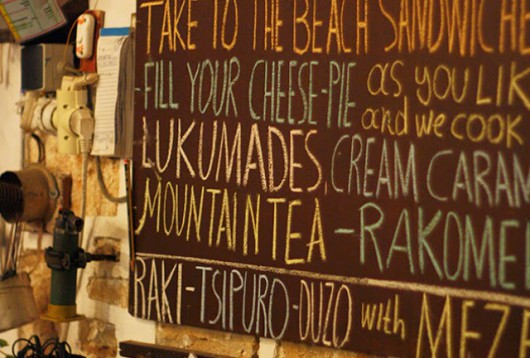 TAKE TO THE BEACH SANDWICH
-FILL YOUR CHEESE-PIE as you LIK
and we cook
LUKUMADES, CREAM CARAM
MOUNTAIN TEA - RAKOME
RAKI-TSIPURO-OUZO with MEZ